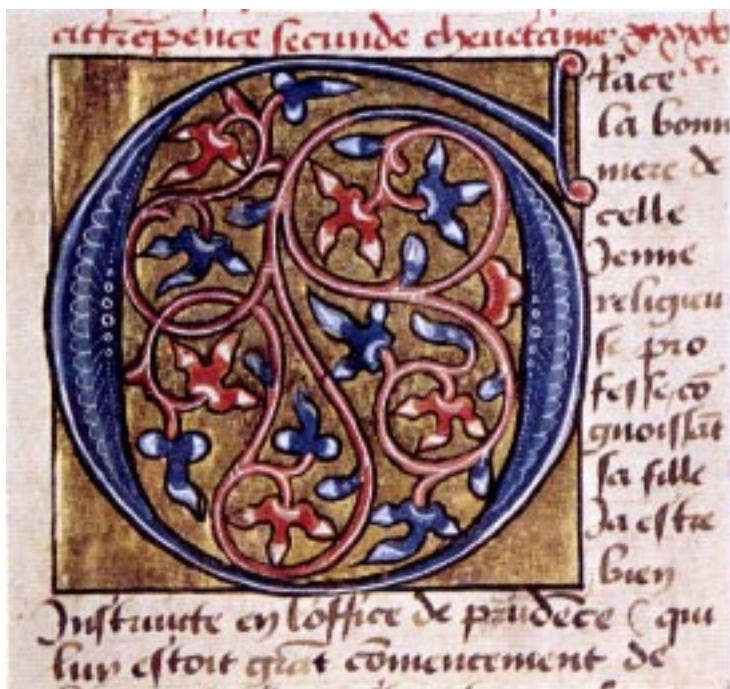 attrēpence secunde chevetaine
Grace
la bonn
mere de
celle
Jenne
religieu
se pro
fesse, cō
gnoissāt
sa fille
Ja estre
bien
Instruicte en loffice de prudēce ( qui
luy estoit grāt cōmencement de